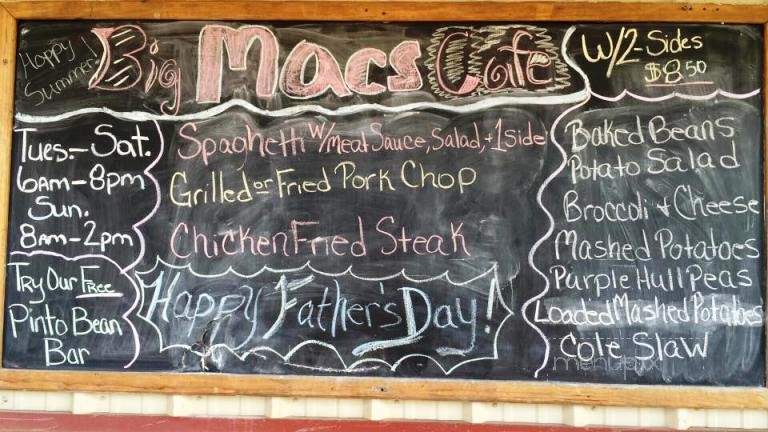 Happy
Summer!
Big Macs Cafe
W/2-Sides
$8.50
Tues.-Sat.
6AM-8pm
Sun.
8AM-2pm
Try Our Free
Pinto Bean
Bar
Spaghetti w/meat Sauce, Salad, +1side
Grilled or Fried Pork Chop
Chicken Fried Steak
Happy Father's Day!
Baked Beans
Potato Salad
Broccoli + Cheese
Mashed Potatoes
Purple Hull Peas
Loaded Mashed Potatoes
Cole Slaw
menupix